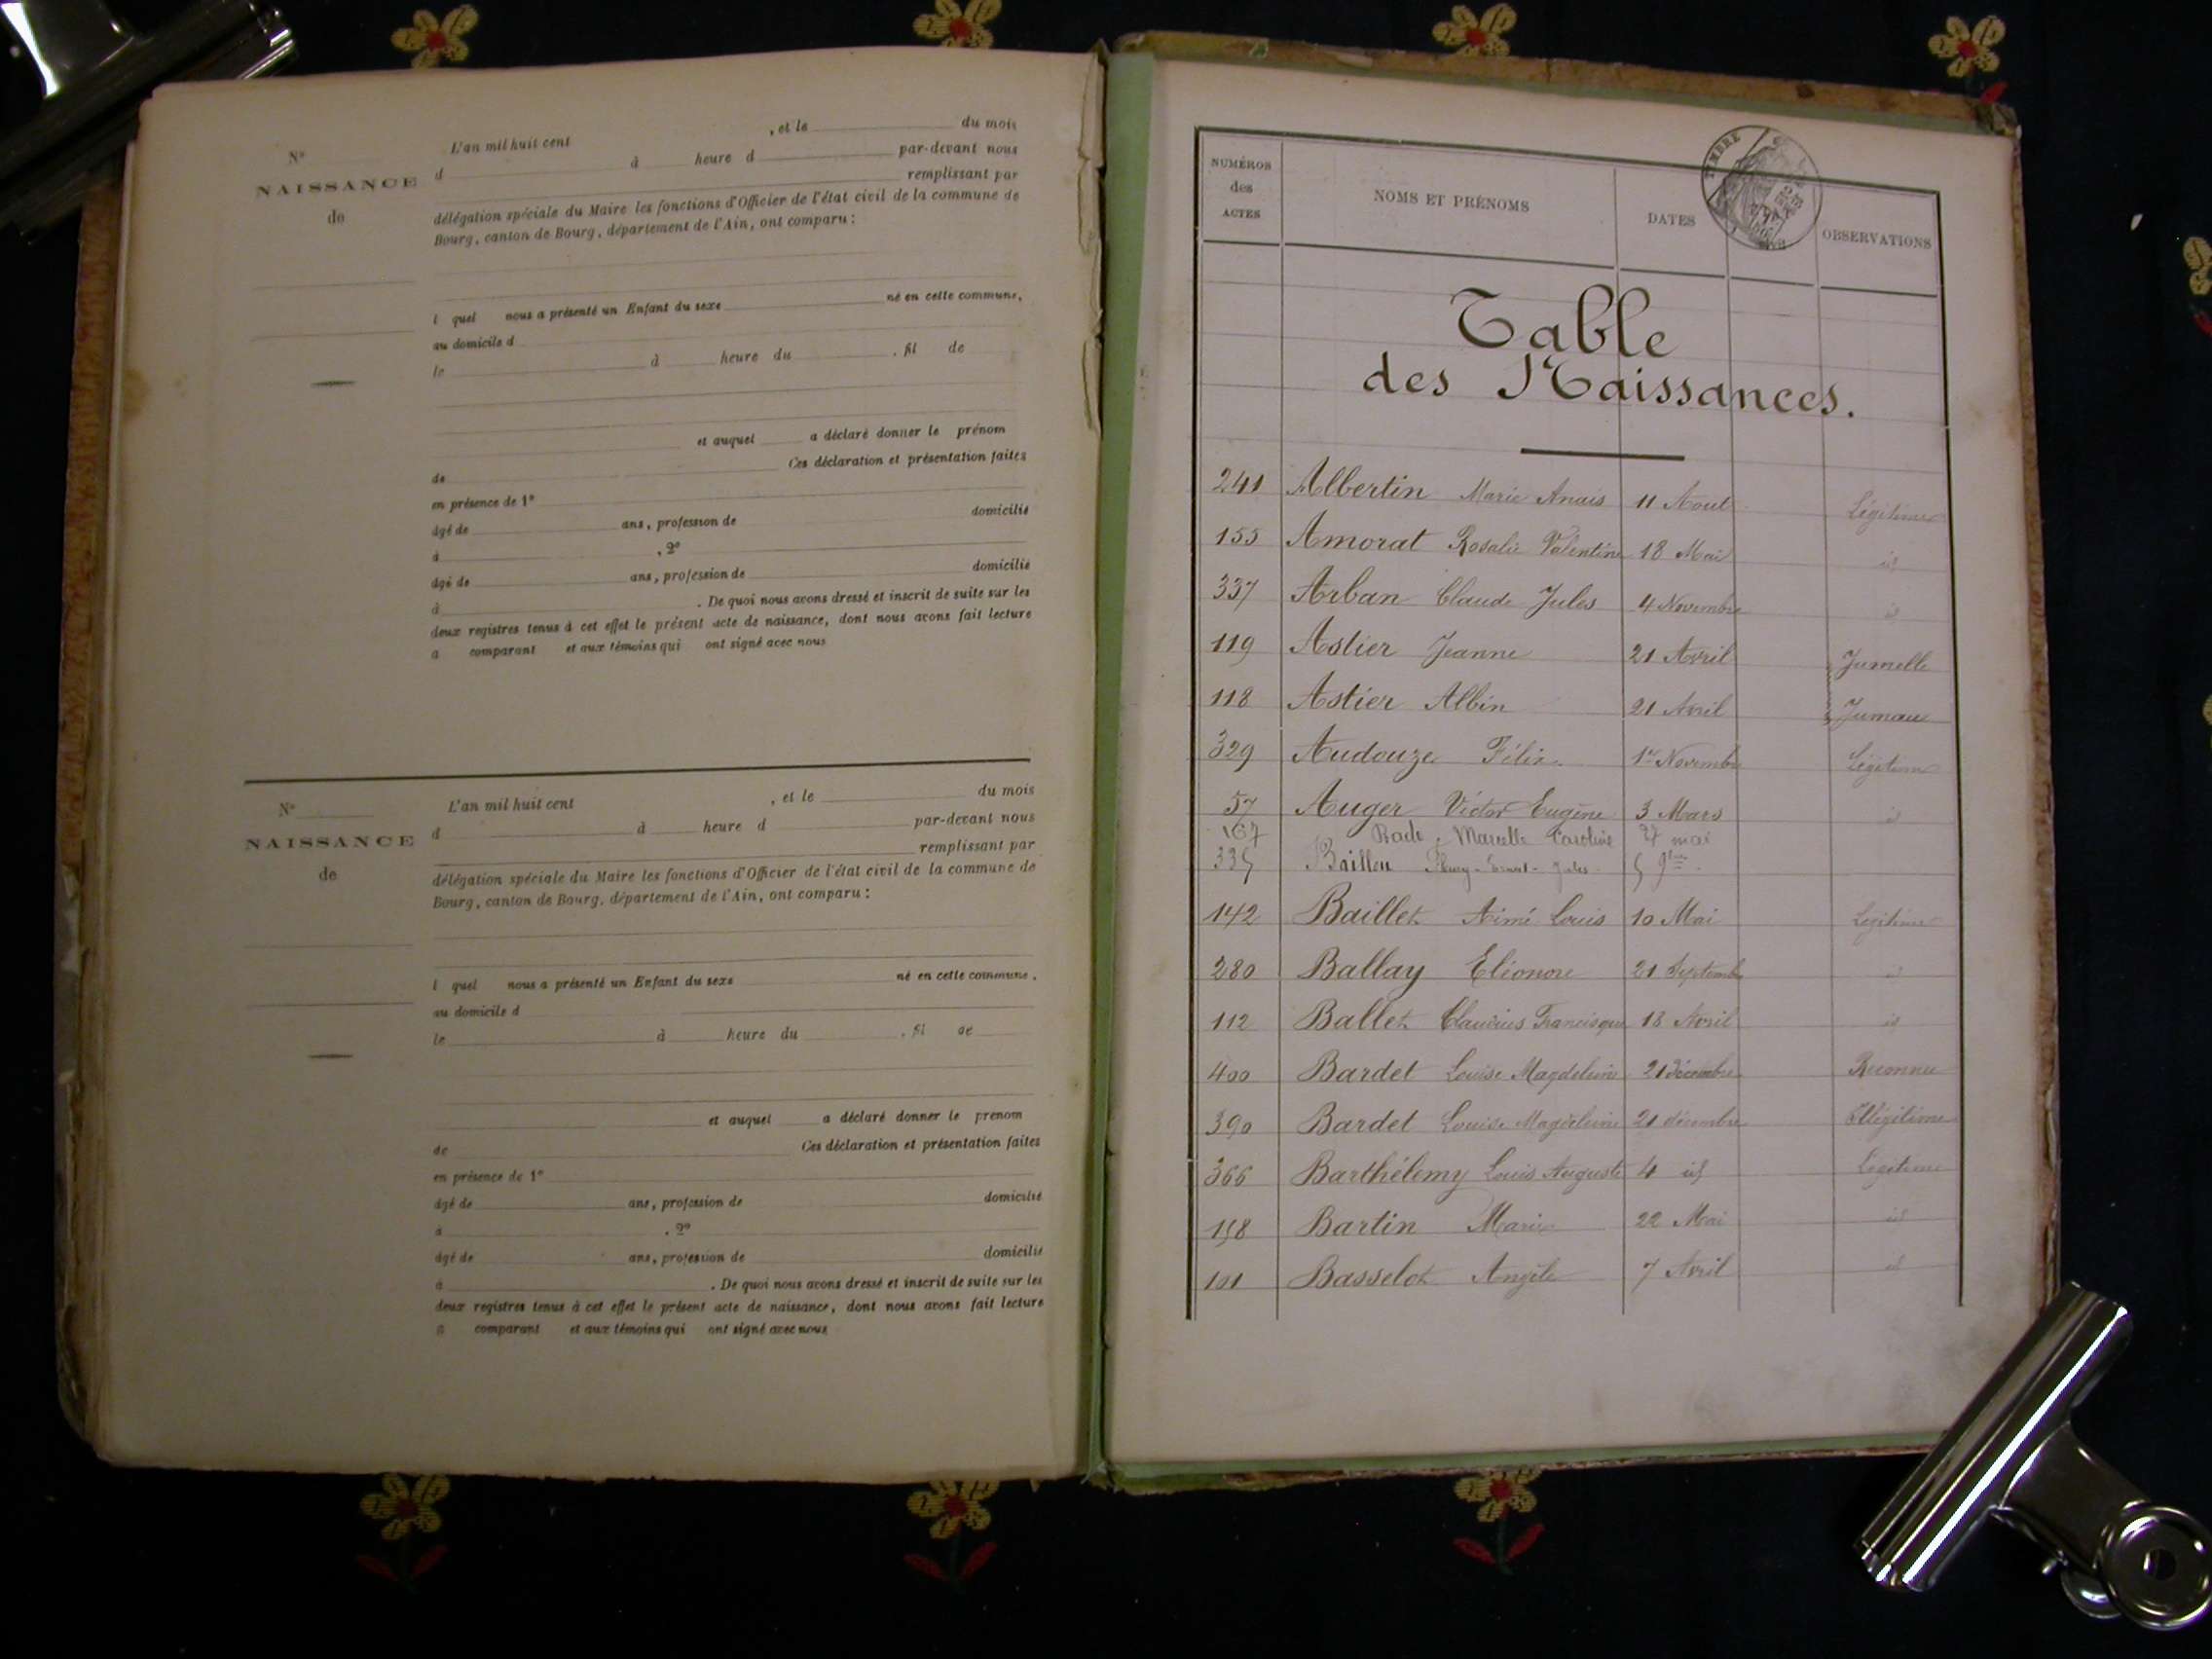 N°
NAISSANCE
de
L'an mil huit cent , et le du mois
d à heure d par-devant nous
remplissant par
délégation spéciale du Maire les fonctions d'Officier de l'état civil de la commune de
Bourg, canton de Bourg, département de l'Ain, ont comparu :
l quel nous a présenté un Enfant du sexe né en cette commune,
au domicile d
le à heure du , fil de
et auquel a déclaré donner le prénom
de Ces déclaration et présentation faites
en présence de 1°
âgé de ans, profession de domicilié
à , 2°
âgé de ans, profession de domicilié
à . De quoi nous avons dressé et inscrit de suite sur les
deux registres tenus à cet effet le présent acte de naissance, dont nous avons fait lecture
a comparant et aux témoins qui ont signé avec nous
N°
NAISSANCE
de
L'an mil huit cent , et le du mois
d à heure d par-devant nous
remplissant par
délégation spéciale du Maire les fonctions d'Officier de l'état civil de la commune de
Bourg, canton de Bourg, département de l'Ain, ont comparu :
l quel nous a présenté un Enfant du sexe né en cette commune,
au domicile d
le à heure du , fil de
et auquel a déclaré donner le prénom
de Ces déclaration et présentation faites
en présence de 1°
âgé de ans, profession de domicilié
à , 2°
âgé de ans, profession de domicilié
à . De quoi nous avons dressé et inscrit de suite sur les
deux registres tenus à cet effet le présent acte de naissance, dont nous avons fait lecture
a comparant et aux témoins qui ont signé avec nous
NUMÉROS des ACTES NOMS ET PRÉNOMS DATES OBSERVATIONS
TIMBRE
Table
des Naissances.
241 Albertin Marie Anais 11 Aout Légitime
155 Amorat Rosalie Valentine 18 Mai id
337 Arban Claude Jules 4 Novembre id
119 Astier Jeanne 21 Avril Jumelle
118 Astier Albin 21 Avril Jumau
329 Audouze Félix 1er Novembre Légitime
57 Auger Victor Eugène 3 Mars id
167 Bade, Marcelle Caroline 27 mai
335 Baillon Jules 5 9bre
142 Baillet Aimé Louis 10 Mai Légitime
280 Ballay Eléonore 21 Septembre id
112 Ballet Claudius Francisque 18 Avril id
400 Bardet Louise Magdeleine 21 décembre Reconnue
390 Bardet Louise Magdeleine 21 décembre Illégitime
366 Barthélemy Louis Auguste 4 id Légitime
158 Bartin Marie 22 Mai id
101 Basselot Angèle 7 Avril id